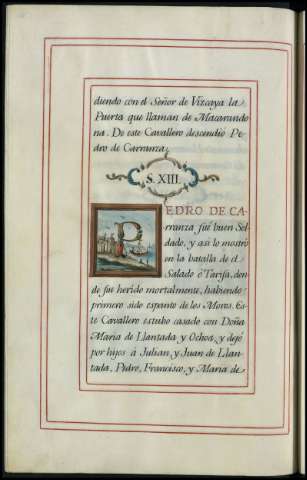 diendo con el Señor de Vizcaya la
Puerta que llaman de Macarando
na. De este Cavallero descendió Pe
dro de Carranza.
S. XIII.
PEDRO DE CA-
rranza fué buen Sol
dado, y asi lo mostró
en la batalla de el
Salado ò Tarifa, don
de fue herido mortalmente, habiendo
primero sido espanto de los Moros. Es
te Cavallero estubo casado con Doña
Maria de Llantada, y Ochoa, y dejó
por hijos á Julian, y Juan de Llan
tada, Pedro, Francisco, y Maria de